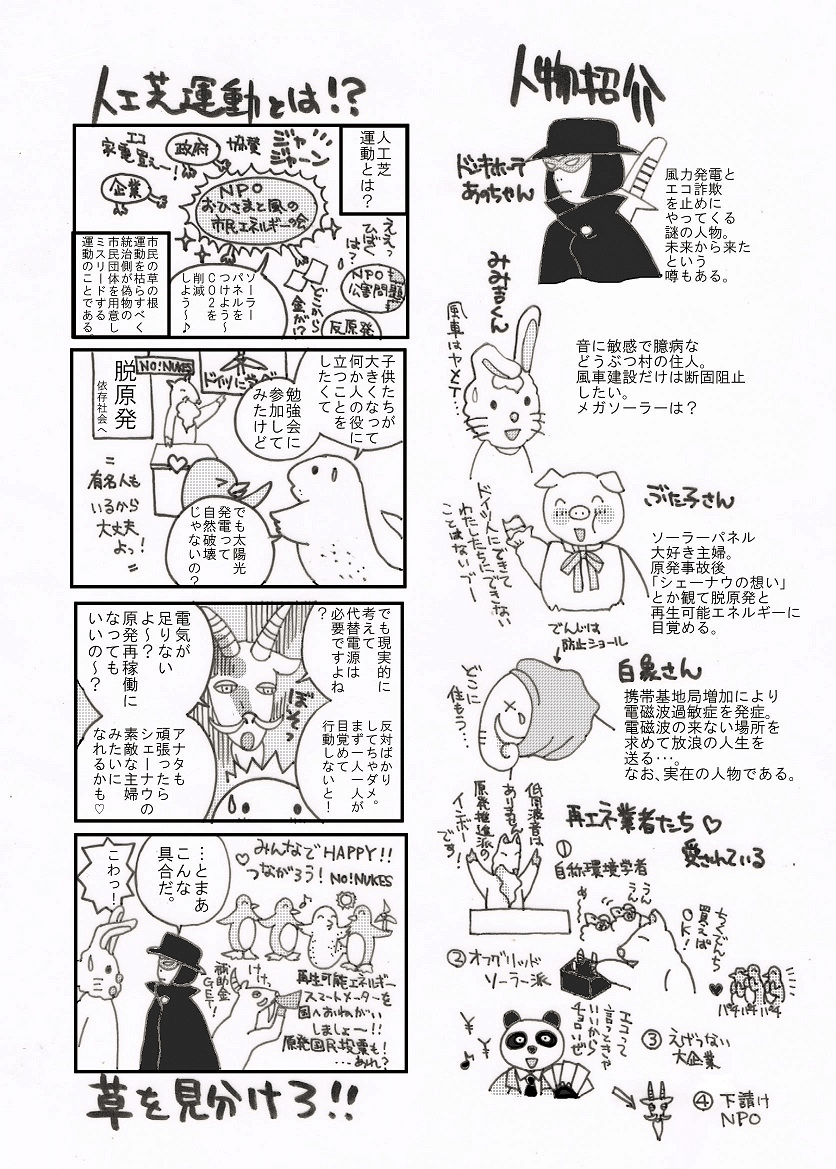 人工芝運動とは!?
人工芝
運動とは?
ジャジャーン
協賛
政府
エコ
家電買えー!
企業
NPO
おひさまと風の
市民エネルギーの会
ええっ
ひばく
は?
NPOも
公害問題
反原発
どこから
金が!?
ソーラー
パネルを
つけよう〜
CO2を
削減
しよう〜♪
市民の草の根
運動を枯らすべく
統治側が偽物の
市民団体を用意し
ミスリードする
運動のことである。
子供たちが
大きくなって
何か人の役に
立つことを
したくて
勉強会に
参加して
みたけど
NO!NUKES
脱原発
依存社会へ
有名人も
いるから
大丈夫
よっ!
でも太陽光
発電って
自然破壊
じゃないの?
でも現実的に
考えて
代替電源は
必要ですよね
?
反対ばかり
してちゃダメ。
まず一人一人が
目覚めて
行動しないと!
ぼそっ
電気が
足りない
よ〜?
原発再稼働に
なっても
いいの〜?
アナタも
頑張ったら
シェーナウの
みたいに
素敵な主婦
なれるかも♡
みんなでHAPPY!!
♡つながろう!NO!NUKES
…とまあ
こんな
具合だ。
こわっ!
けけっ
補助金
GET!
再生可能エネルギー
スマートメーターを
国へおねがい
しましょー!!
原発国民投票も!
…あれ?
草を見分けろ!!
人物紹介
ドンキホーテ
あのちゃん
風力発電と
エコ詐欺
を止めに
やってくる
謎の人物。
未来から来た
という
噂もある。
みみ吉くん
風車はヤメテ…
音に敏感で臆病な
どうぶつ村の住人。
風車建設だけは断固阻止
したい。
メガソーラーは?
ぶた子さん
ドイツ人にできて
わたしたちにできない
ことはないブー
ソーラーパネル
大好き主婦。
原発事故後
「シェーナウの想い」
とか観て脱原発と
再生可能エネルギーに
目覚める。
でんじは
防止ショール
白象さん
どこに
住もう…
携帯基地局増加により
電磁波過敏症を発症。
電磁波の来ない場所を
求めて放浪の人生を
送る…。
なお、実在の人物である。
再エネ業者たち♡
愛されている
①
自称環境学者
低周波音は
ありません
原発推進派の
インボーです!
②オフグリッド
ソーラー派
うん
うん
ちくでんち
買えば
OK!
♥
パチパチパチ
③えげつない
大企業
エコって
言っときゃ
いいから
チョロいぜ
¥
¥
♪
④下請け
NPO